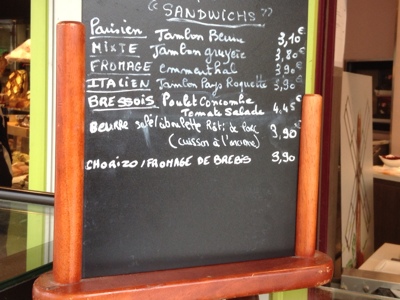 “ SANDWICHS ”
Parisien Jambon Beurre 3,10 €
MIXTE Jambon gruyère 3,80 €
FROMAGE emmenthal 3,90 €
ITALIEN Jambon Pays Roquette 3,90 €
BRESSOIS Poulet Concombre
Tomate Salade 4,45 €
BEURRE salé ciboulette Rôti de Porc
(cuisson à l'ancienne) 3,90 €
CHORIZO / FROMAGE DE BREBIS 3,90